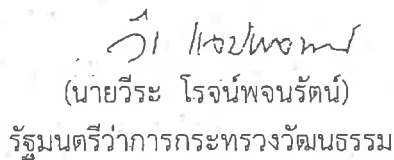 (นายวีระ โรจน์พจนรัตน์)
รัฐมนตรีว่าการกระทรวงวัฒนธรรม